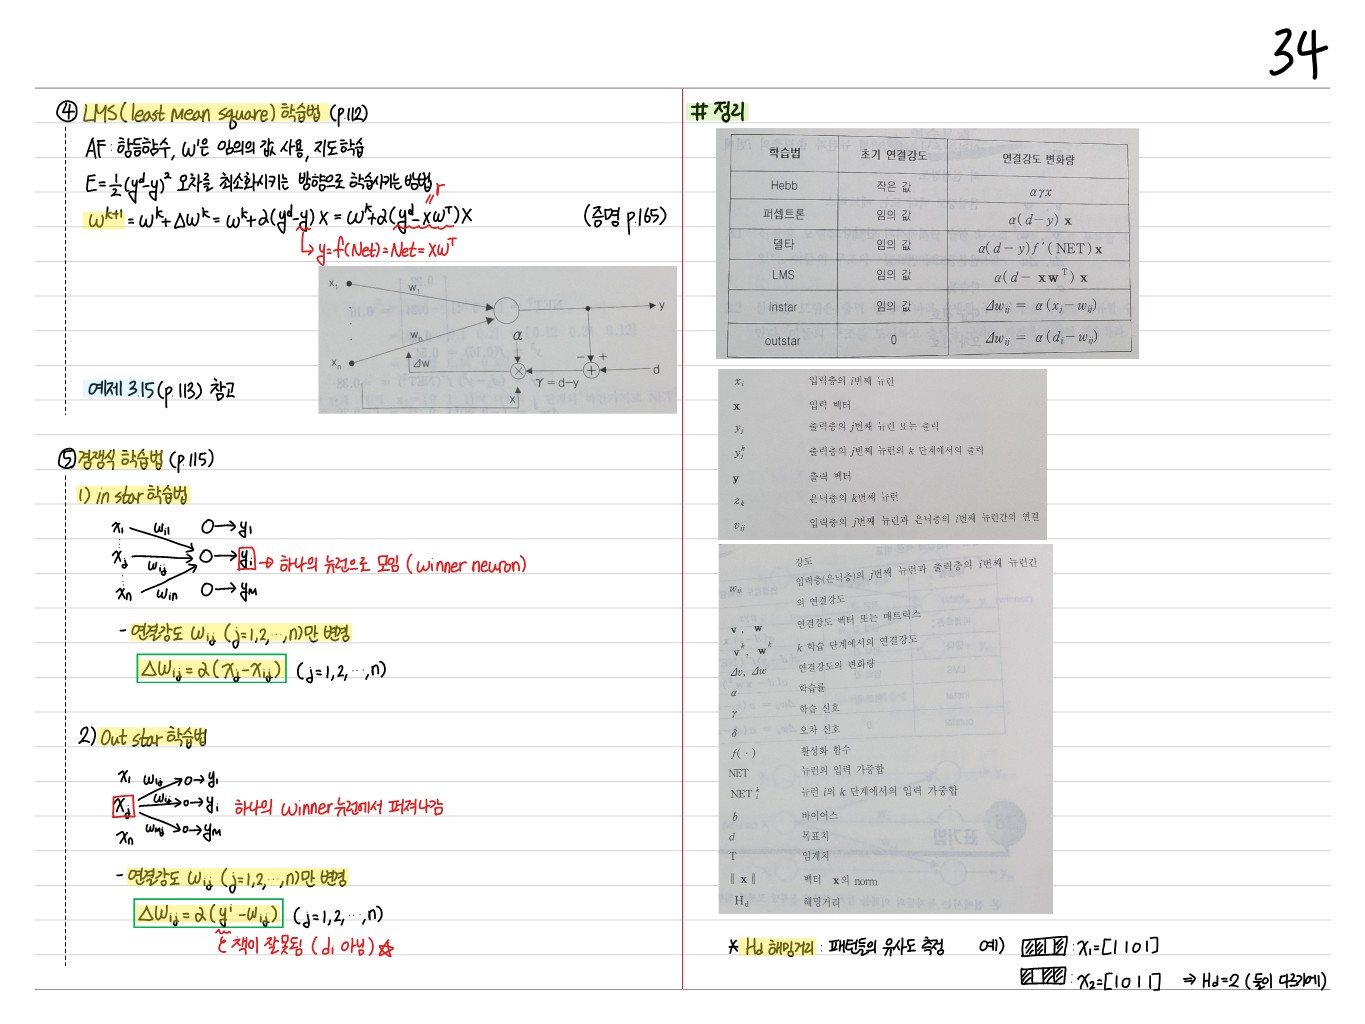 34
④ LMS(least mean square) 학습법 (p.112)
AF : 항등함수, w¹은 임의의 값 사용, 지도학습
E = ½(yᵈ-y)² 오차를 최소화시키는 방향으로 학습시키는 방법
r
wᵏ⁺¹ = wᵏ + Δwᵏ = wᵏ + α(yᵈ-y)x = wᵏ + α(yᵈ-xwᵀ)x (증명 p165)
↳ y=f(Net)=Net=xwᵀ
x₁ w₁ y
α
wₙ
xₙ Δw − + d
γ = d-y
x
예제 3.15(p.113) 참고
⑤ 경쟁식 학습법 (p.115)
1) in star 학습법
x₁ wᵢ₁ O→y₁
xⱼ wᵢⱼ O→yᵢ → 하나의 뉴런으로 모임 (winner neuron)
xₙ wᵢₙ O→yₘ
- 연결강도 wᵢⱼ (j=1,2,…,n)만 변경
ΔWᵢⱼ = α(xⱼ-xᵢⱼ) (j=1,2,…,n)
2) Out star 학습법
x₁ w₁ⱼ O→y₁
xⱼ wᵢⱼ O→yᵢ 하나의 winner 뉴런에서 퍼져나감
xₙ wₘⱼ O→yₘ
- 연결강도 wᵢⱼ (j=1,2,…,n)만 변경
ΔWᵢⱼ = α(yⁱ-wᵢⱼ) (j=1,2,…,n)
책이 잘못됨 (dᵢ 아님) ☆
# 정리
학습법 초기 연결강도 연결강도 변화량
Hebb 작은 값 αγx
퍼셉트론 임의 값 α(d-y) x
델타 임의 값 α(d-y)f′(NET)x
LMS 임의 값 α(d- xwᵀ) x
instar 임의 값 Δwᵢⱼ = α(xⱼ-wᵢⱼ)
outstar 0 Δwᵢⱼ = α(dᵢ-wᵢⱼ)
xᵢ 입력층의 i번째 뉴런
x 입력 벡터
yⱼ 출력층의 j번째 뉴런 또는 출력
yⱼᵏ 출력층의 j번째 뉴런의 k 단계에서의 출력
y 출력 벡터
zₖ 은닉층의 k번째 뉴런
vᵢⱼ 입력층의 j번째 뉴런과 은닉층의 i번째 뉴런간의 연결
강도
wᵢⱼ 입력층(은닉층)의 j번째 뉴런과 출력층의 i번째 뉴런간
의 연결강도
v, w 연결강도 벡터 또는 매트릭스
vᵏ, wᵏ k 학습 단계에서의 연결강도
Δv, Δw 연결강도의 변화량
α 학습률
γ 학습 신호
δ 오차 신호
f(·) 활성화 함수
NET 뉴런의 입력 가중합
NETᵢᵏ 뉴런 i의 k 단계에서의 입력 가중합
b 바이어스
d 목표치
T 임계치
‖x‖ 벡터 x의 norm
H_d 해밍거리
* Hd 해밍거리 : 패턴들의 유사도 측정 예) : x₁=[1 1 0 1]
: x₂=[1 0 1 1] ⇒ Hd=2 (둘이 다르기에)